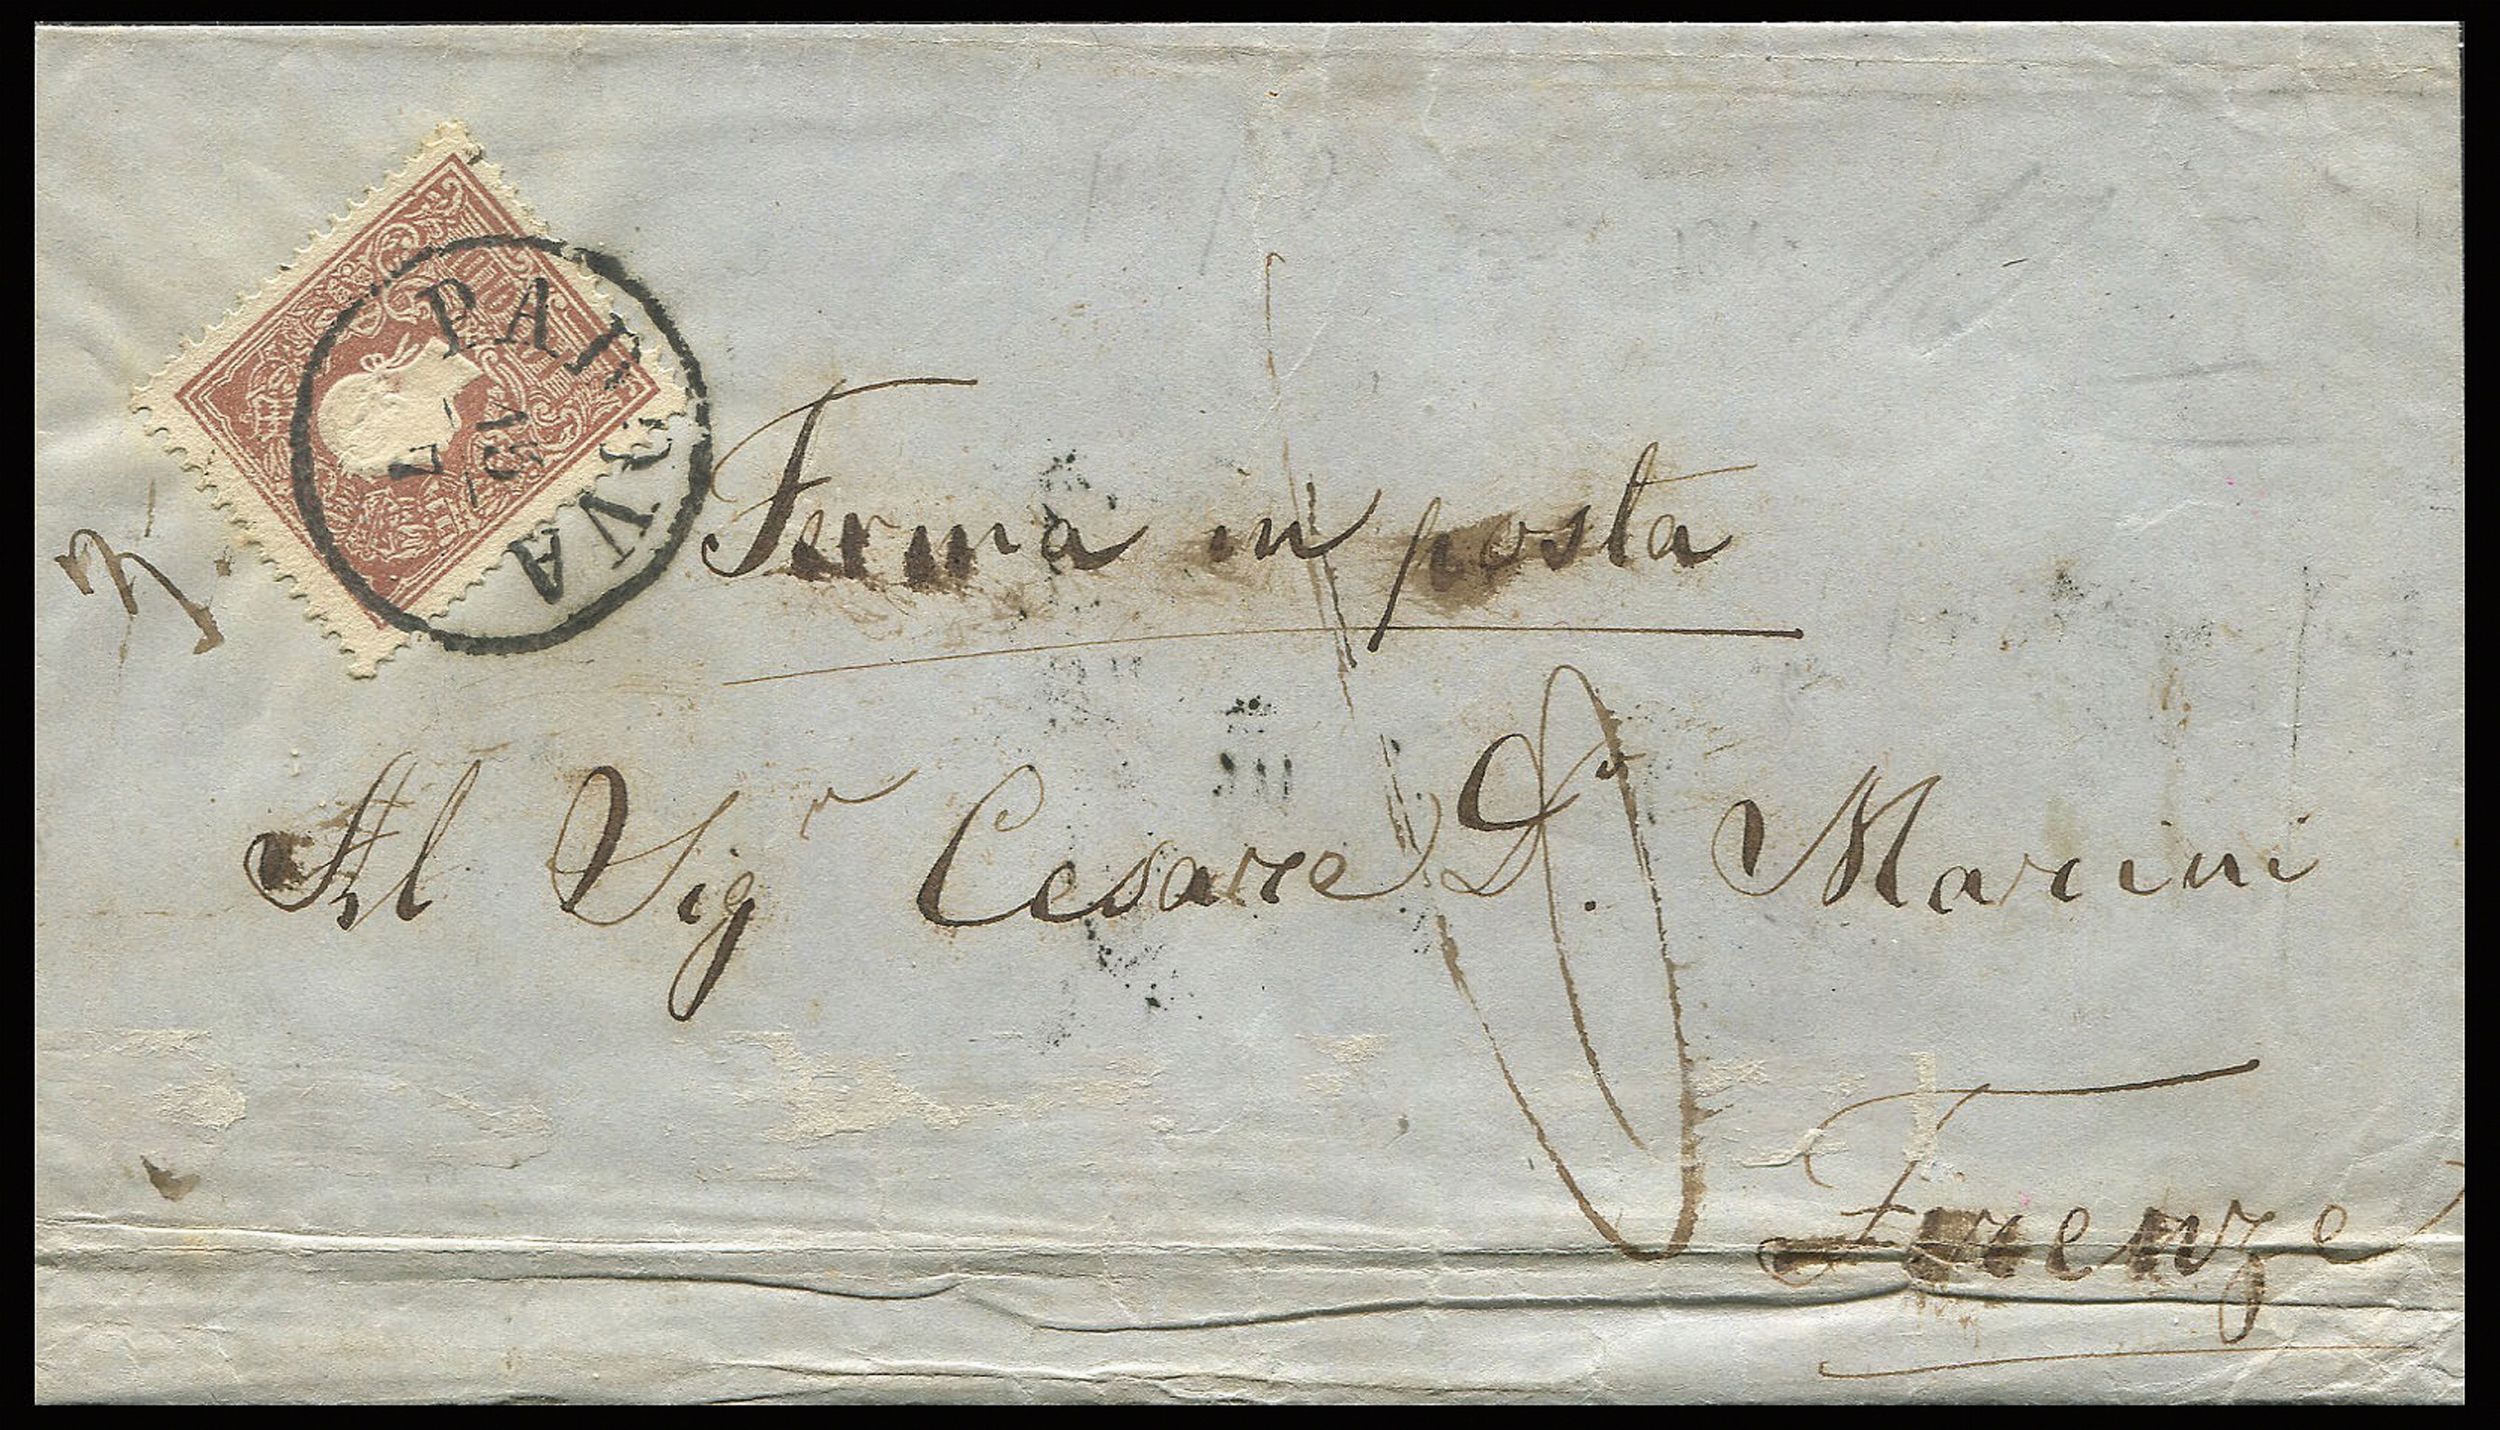 PADOVA
15/7
3
Ferma in posta
Al Sigr Cesare Dr. Marini
Firenze